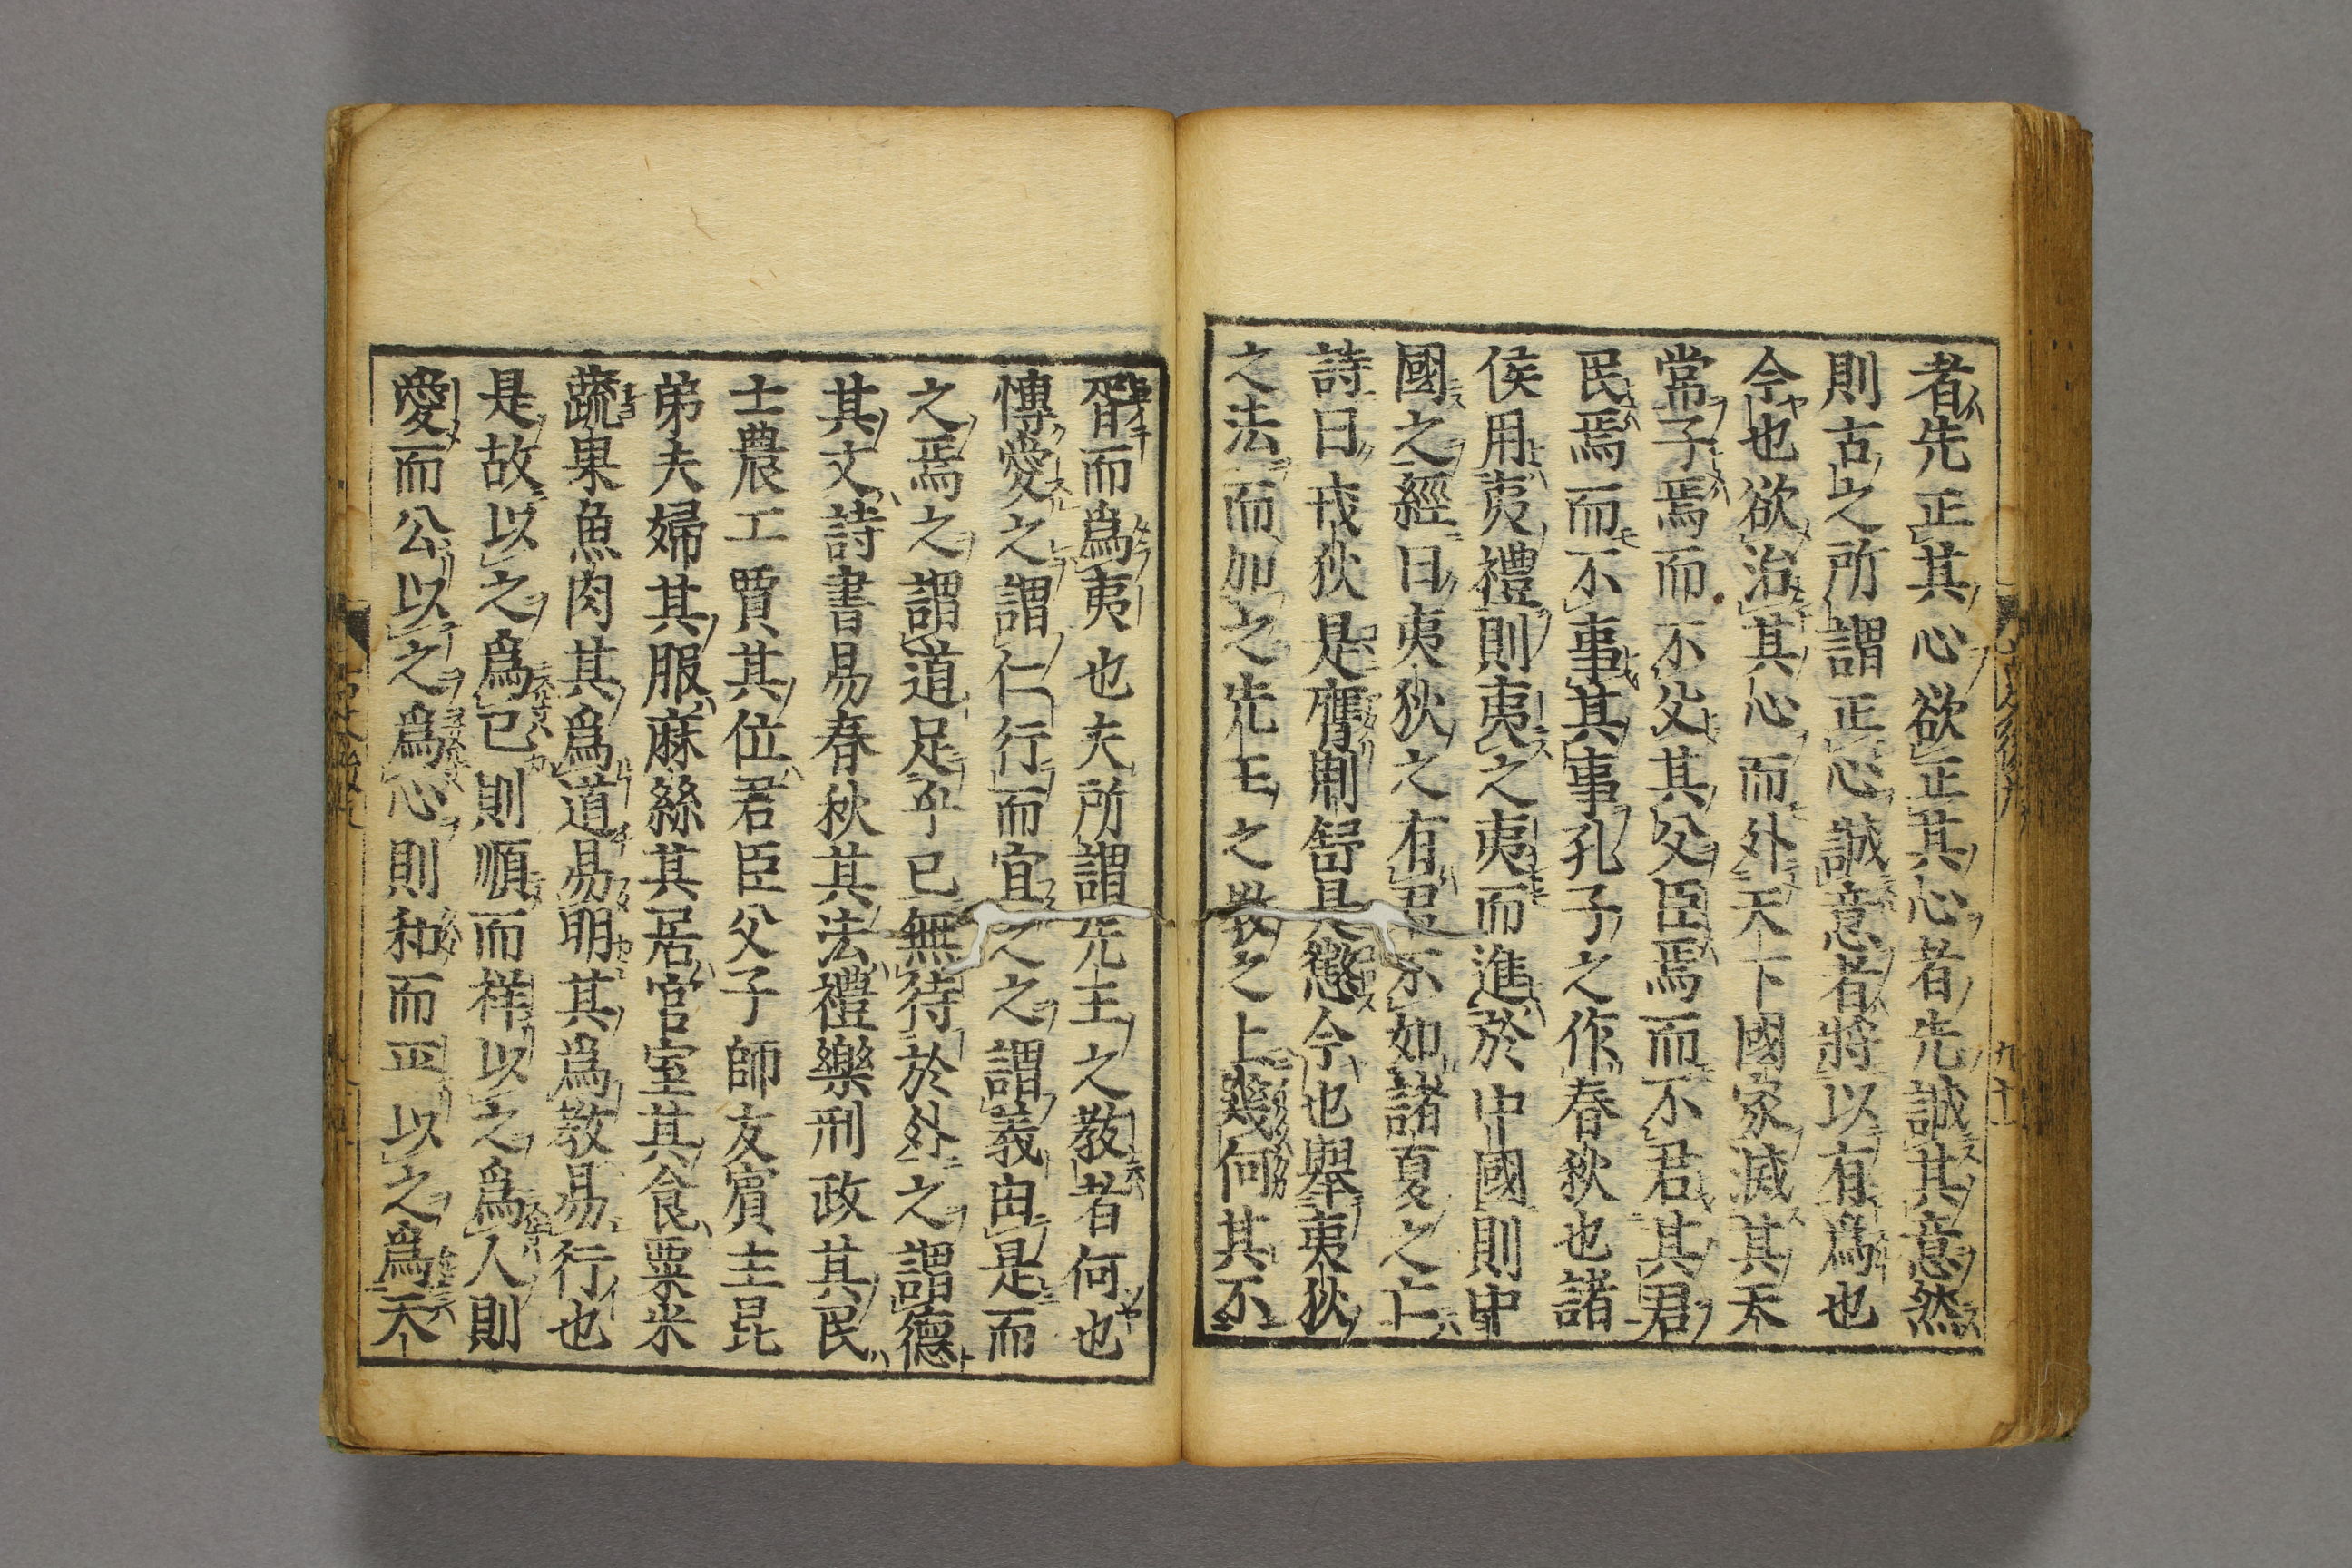 者先正其心欲正其心者先誠其意然
則古之所謂正心誠意者將以有爲也
今也欲治其心而外天下國家滅其天
常子焉而不父其父臣焉而不君其君
民焉而不事其事孔子之作春秋也諸
侯用夷禮則夷之夷而進於中國則中
國之經曰夷狄之有君不如諸夏之亡
詩曰戎狄是膺荆舒是懲今也舉夷狄
之法而加之先王之教之上幾何其不
胥而爲夷也夫所謂先王之教者何也
愽愛之謂仁行而宜之之謂義由是而
之焉之謂道足乎已無待於外之謂德
其文詩書易春秋其法禮樂刑政其民
士農工賈其位君臣父子師友賓主昆
弟夫婦其服麻絲其居宫室其食粟米
蔬果魚肉其爲道易明其爲教易行也
是故以之爲已則順而祥以之爲人則
愛而公以之爲心則和而平以之爲天